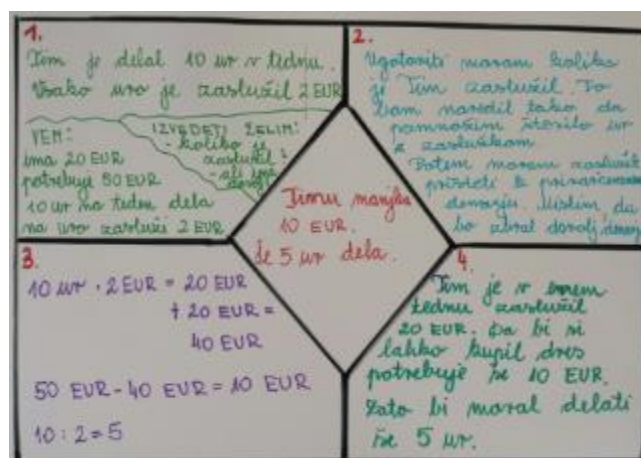 1.
Tim je delal 10 ur v tednu.
Vsako uro je zaslužil 2 EUR
VEM:
ima 20 EUR
potrebuje 50 EUR
10 ur na teden dela
na uro zasluži 2 EUR
IZVEDETI ŽELIM:
- koliko je
zaslužil?
- ali ima
dovolj
2.
Ugotoviti moram koliko
je Tim zaslužil. To
bom naredil tako da
pomnožim število ur
z zaslužkom
Potem moram zaslužek
prišteti k
denarju. Mislim, da
bo zbral dovolj denarja
Timu manjka
10 EUR.
še 5 ur dela.
3.
10 ur · 2 EUR = 20 EUR
+ 20 EUR =
40 EUR
50 EUR - 40 EUR = 10 EUR
10 : 2 = 5
4.
Tim je v enem
tednu zaslužil
20 EUR. Da bi si
lahko kupil dres
potrebuje še 10 EUR.
Zato bi moral delati
še 5 ur.